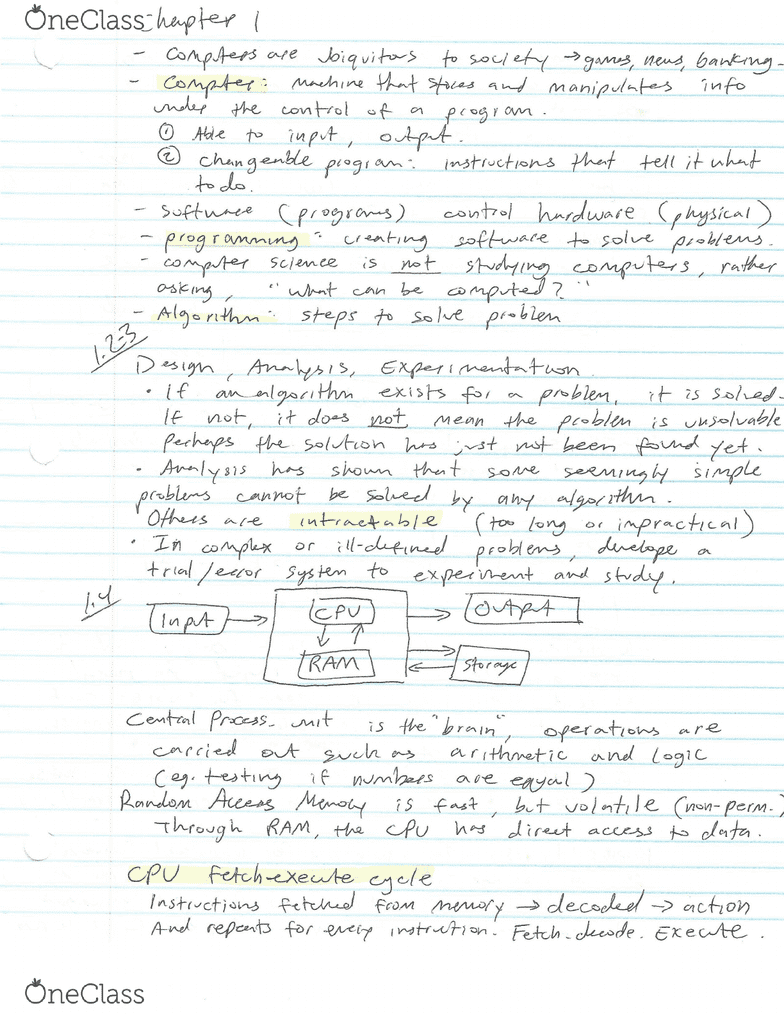 OneClass Chapter 1
- Computers are ubiquitous to society → games, news, banking-
- Computer: machine that stores and manipulates info
under the control of a program.
① Able to input, output.
② changeable program: instructions that tell it what
to do.
- Software (programs) control hardware (physical)
- programming: creating software to solve problems.
- computer science is not studying computers, rather
asking, "what can be computed?"
- Algorithm: steps to solve problem
1.2-3
Design, Analysis, Experimentation
• If an algorithm exists for a problem, it is solved-
If not, it does not mean the problem is unsolvable
Perhaps the solution has just not been found yet.
• Analysis has shown that some seemingly simple
problems cannot be solved by any algorithm.
Others are intractable (too long or impractical)
• In complex or ill-defined problems, develope a
trial/error system to experiment and study.
1.4
Input → CPU → Output
↓ ↑
RAM ⇄ Storage
Central Process. unit is the "brain", operations are
carried out such as arithmetic and logic
(eg. testing if numbers are equal)
Random Access Memory is fast, but volatile (non-perm.)
Through RAM, the CPU has direct access to data.
CPU fetch-execute cycle
Instructions fetched from memory → decoded → action
And repeats for every instruction. Fetch-decode. Execute.
OneClass